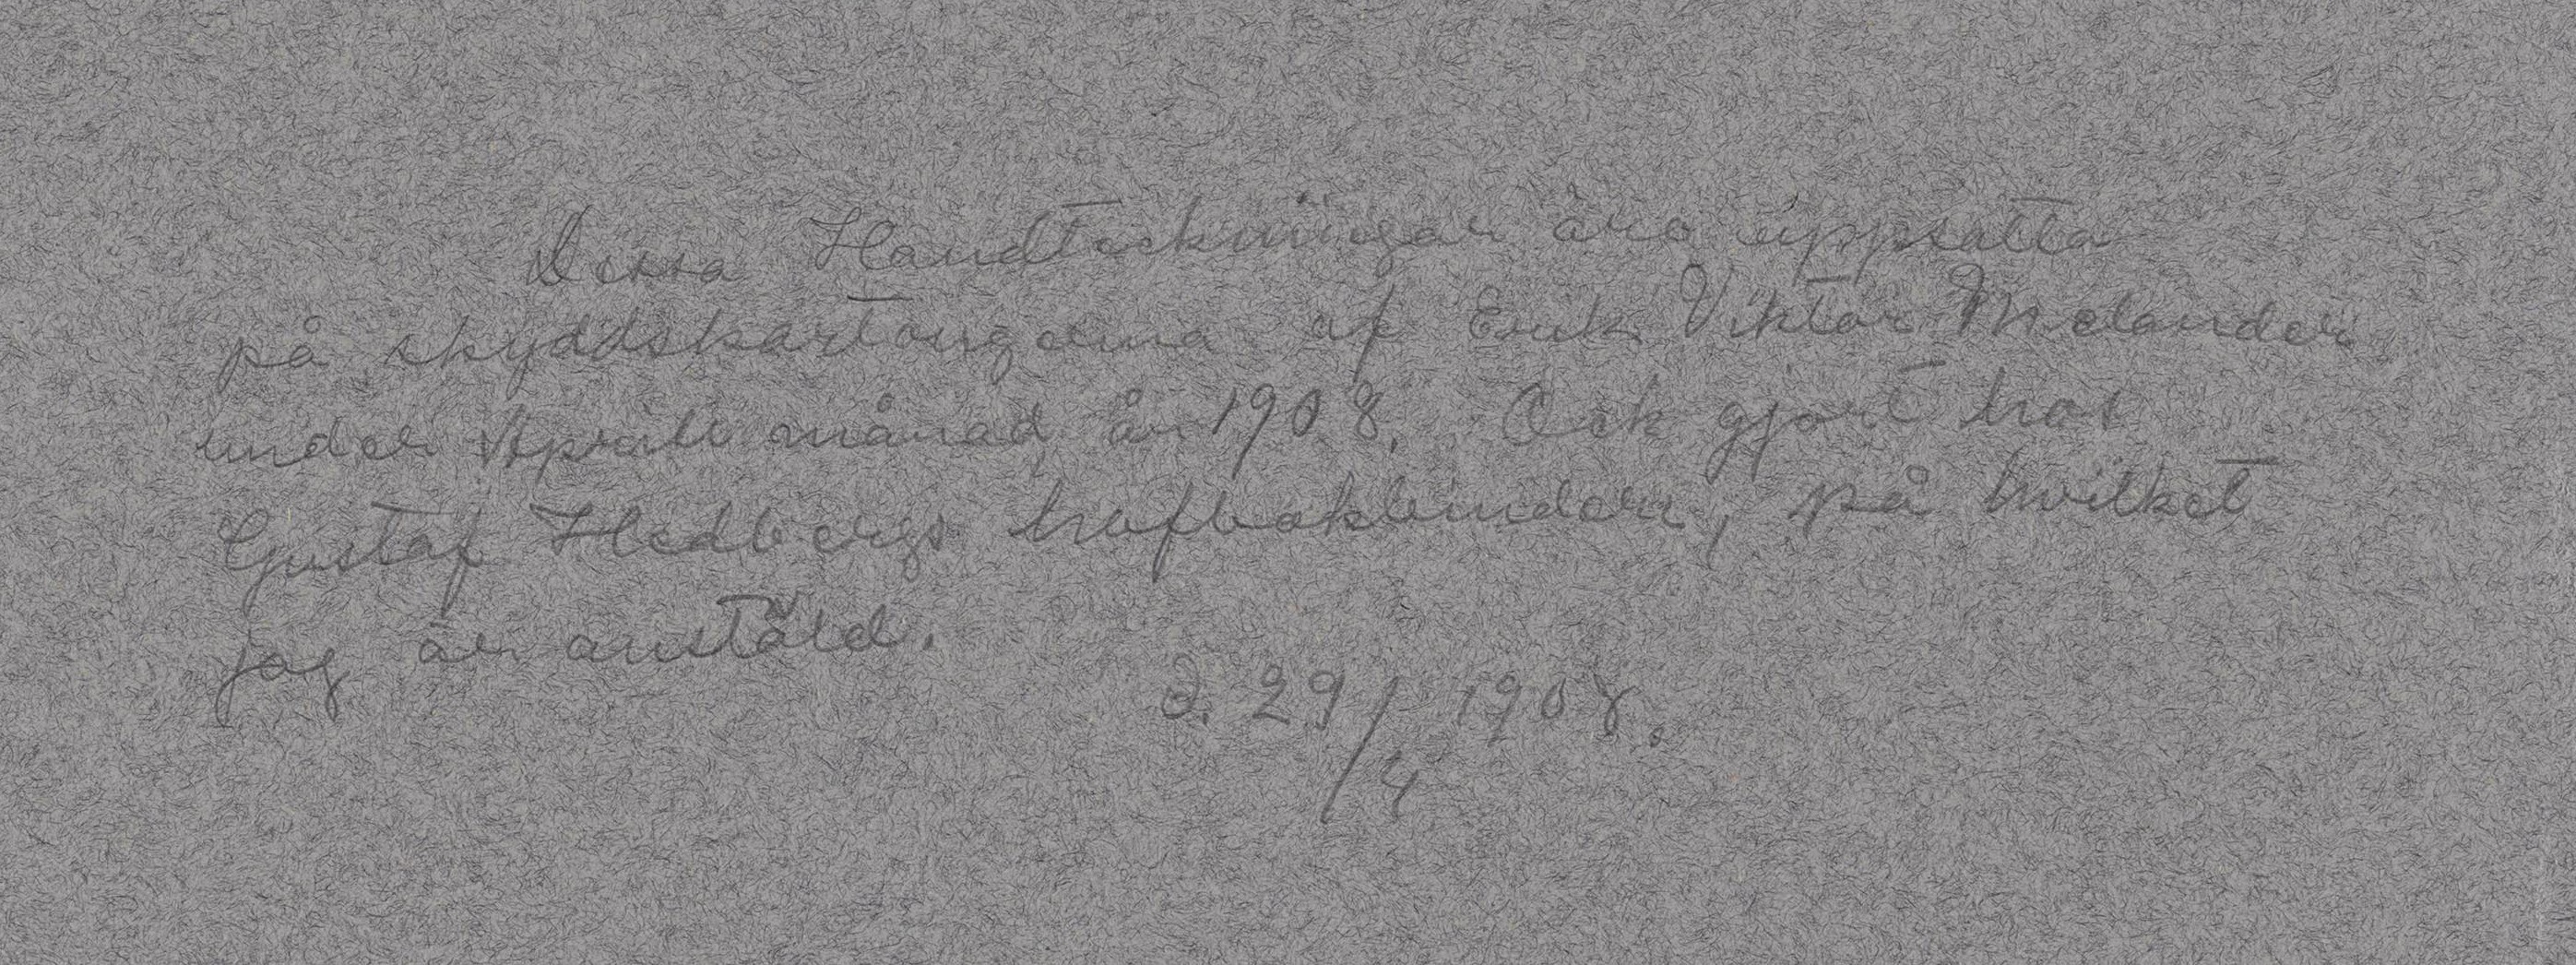 Dessa Handteckningar äro uppsatta
på skyddskartongerna af Erik Viktor Melander
under Aprill månad år 1908. Ock gjort hos
Gustaf Hedbergs hofbokbinderi, på hvilket
jag är anstäld.
d. 29/4 1908.